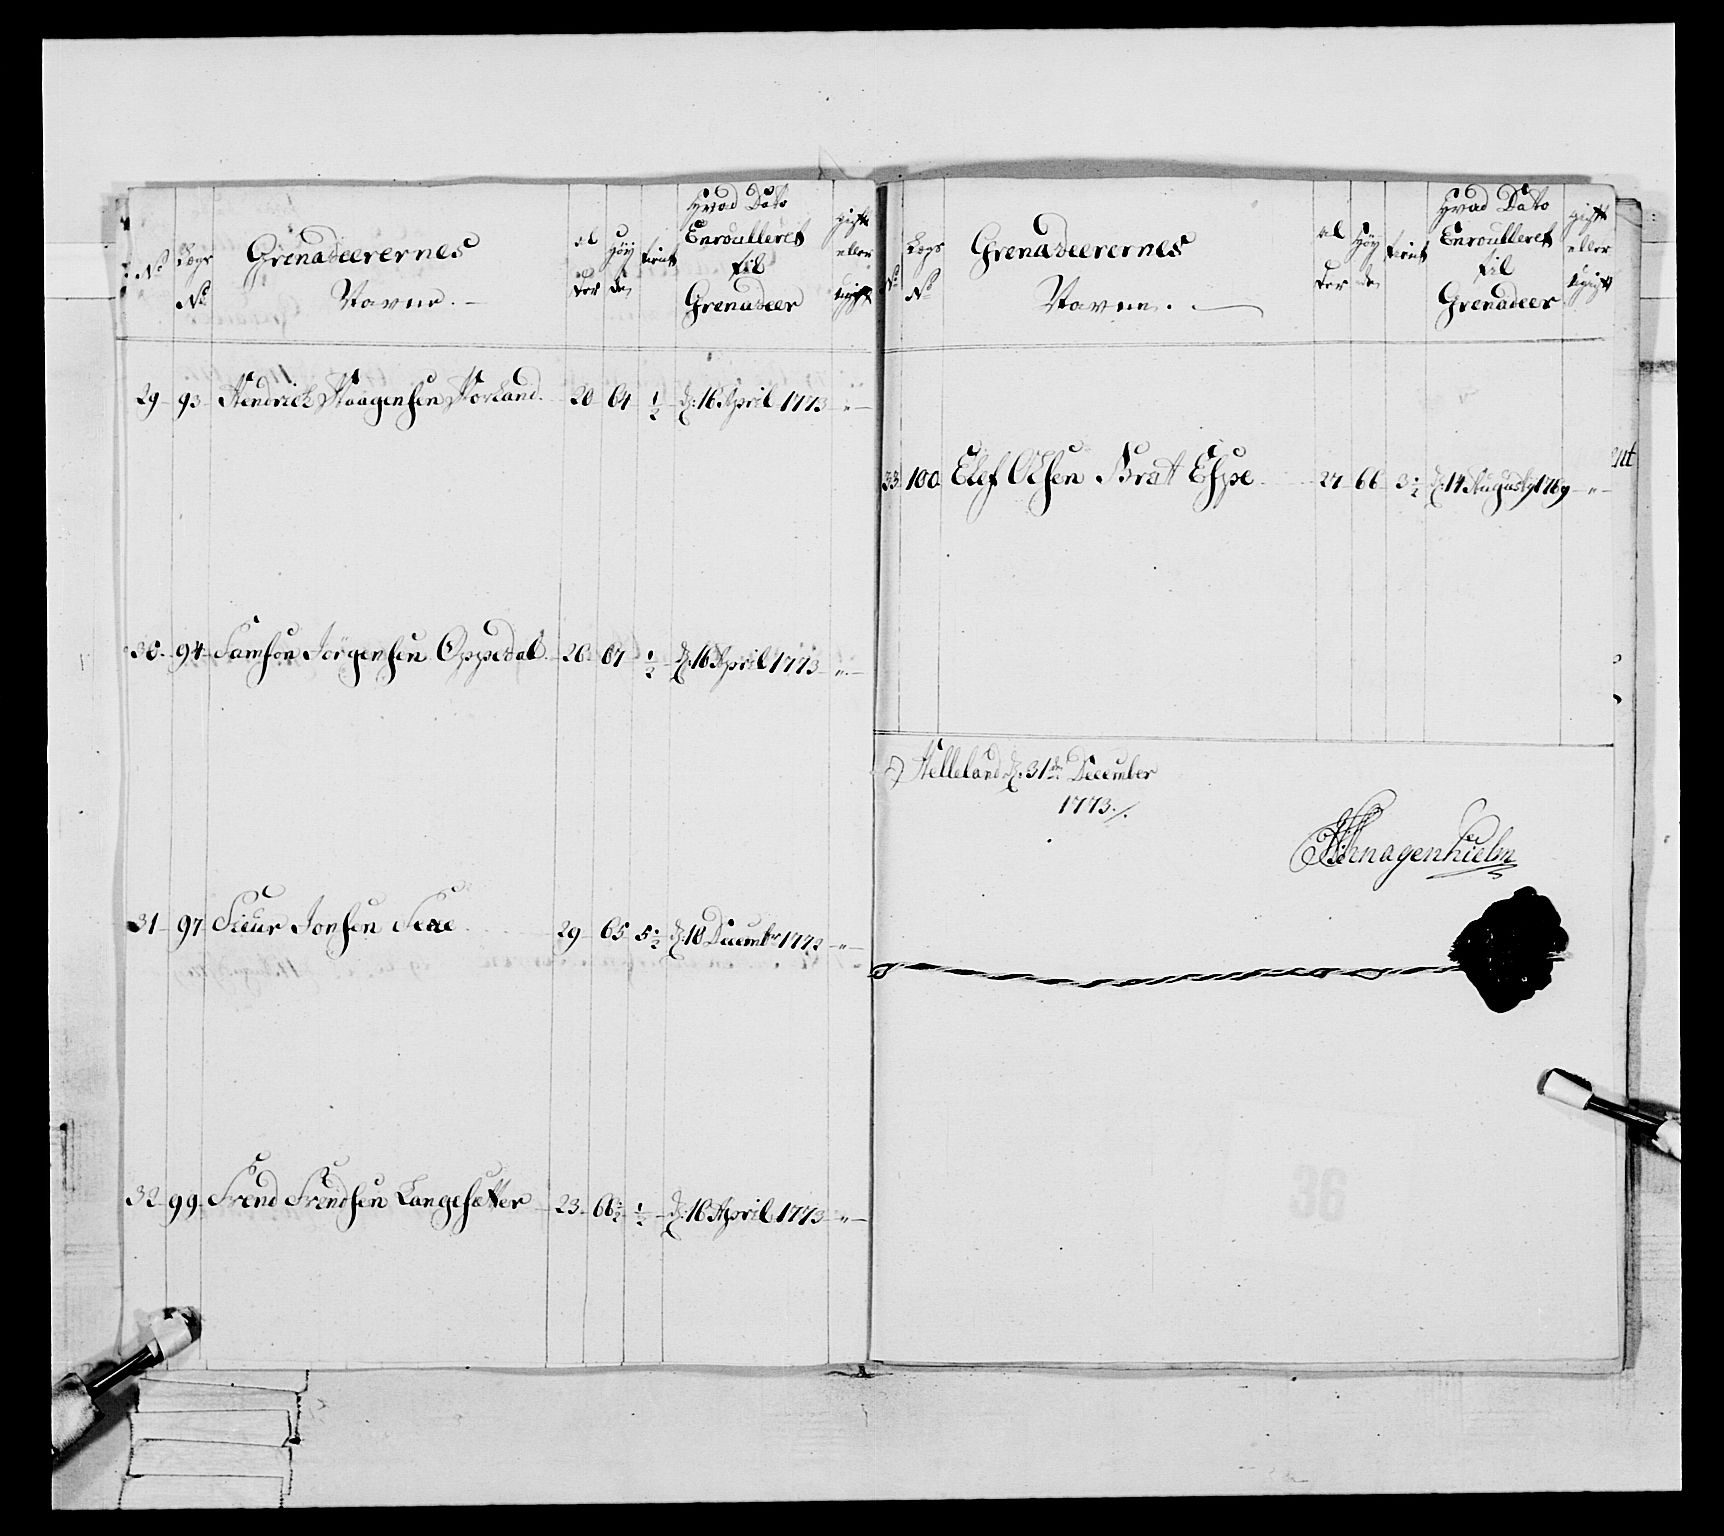 No
Lægs
No
Grenadeerernes
Navne.
al
der
Höy
de
tient
Hvad Dato
Enroulleret
til
Grenadeer
gift
eller
ugift
29 93 Hendrich Haagensen Norland. 20 64 1/2 d: 16 April 1773 "
30. 94 Samson Jörgensen Oppedal 20. 67 1/2 d: 16 April 1773 "
31 97 Siur Jonsen Sexe 29 65 5 1/2 d: 18 Decembr 1772 "
32 99 Trond Trondsen Langesætter 23. 66 1/2 1/2 d: 16 April 1773 "
No
Lægs
No
Grenadeerernes
Navne.
al
der
Höy
de
tient
Hvad Dato
Enroulleret
til
Grenadeer
gift
eller
ugift
33 100 Elef Olsen Brat Espe 27 66 3 1/2 d: 14 Augusty 1769 "
Helleland d: 31de December
1773./.
36